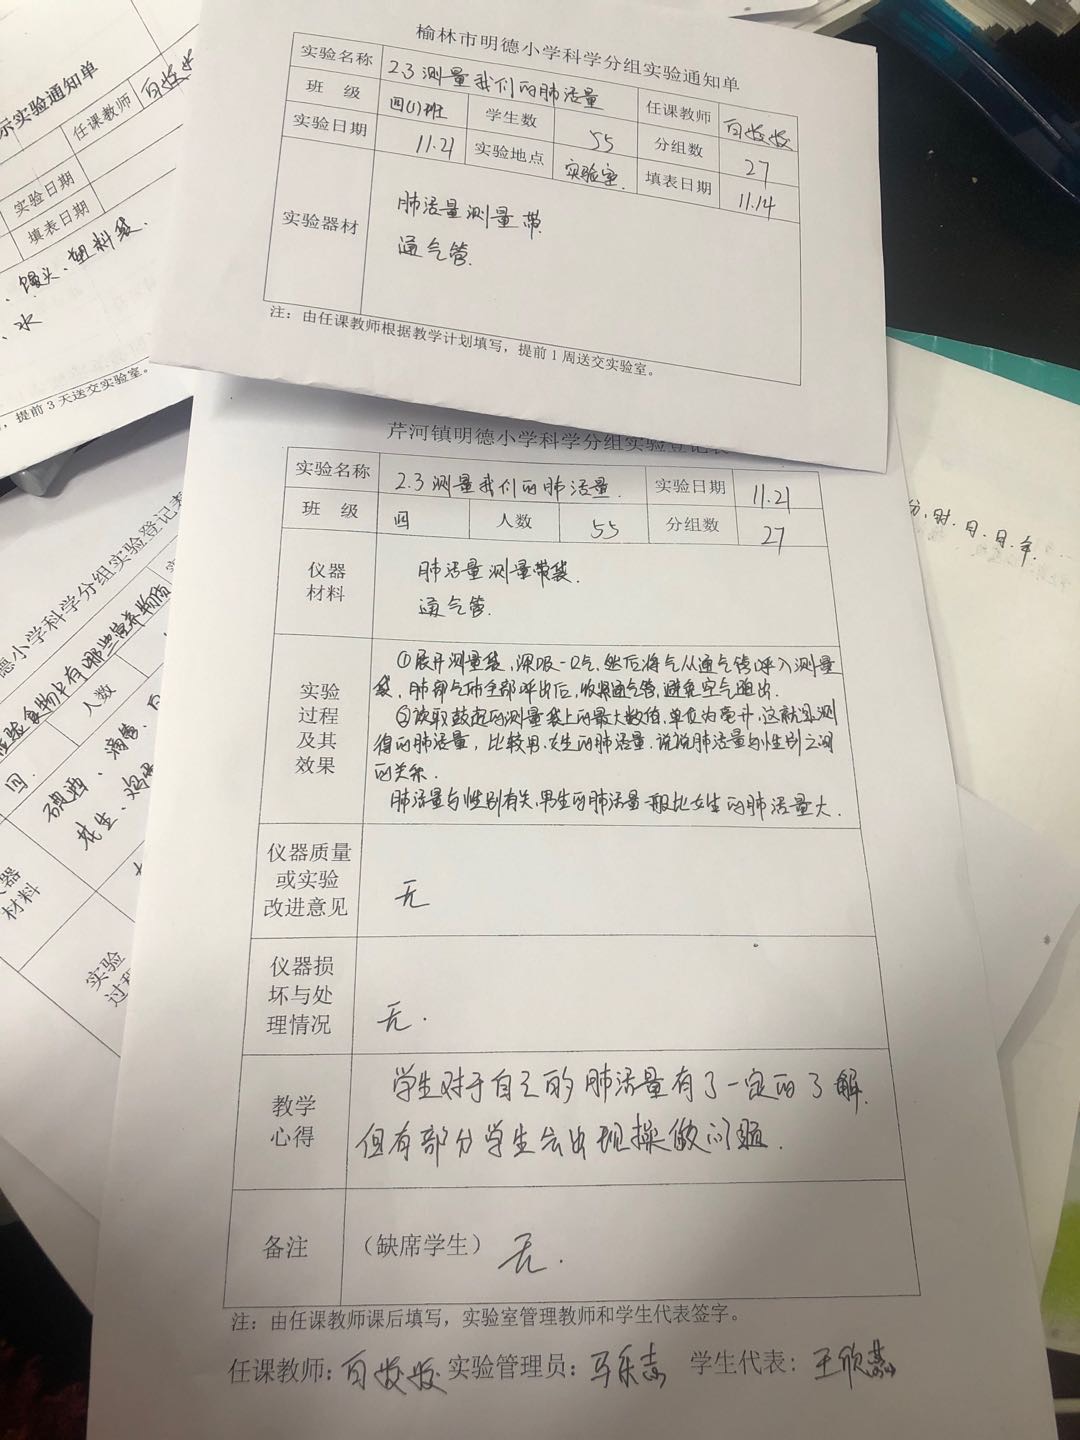 榆林市明德小学科学分组实验通知单
实验名称 2.3 测量我们的肺活量 任课教师
班 级 四(1)班 学生数 55 分组数 27
实验日期 11.21 实验地点 实验室. 填表日期 11.14
实验器材
肺活量测量带
通气管.
注：由任课教师根据教学计划填写，提前1周送交实验室。
示实验通知单
任课教师
实验日期
填表日期
、馒头、塑料袋.
、水
，提前3天送交实验室。
芹河镇明德小学科学分组实验登记表
实验名称 2.3 测量我们的肺活量. 实验日期 11.21
班 级 四 人数 55 分组数 27
仪器
材料
肺活量测量带袋.
通气管.
实验
过程
及其
效果
①展开测量袋,深吸一口气,然后将气从通气管呼入测量
袋,肺部气体全部呼出后,收紧通气管,避免空气跑出.
②读取鼓起的测量袋上的最大数值,单位为毫升,这就是测
得的肺活量,比较男、女生的肺活量,说说肺活量与性别之间
的关系.
肺活量与性别有关,男生的肺活量一般比女生的肺活量大.
仪器质量
或实验
改进意见
无
仪器损
坏与处
理情况
无.
教学
心得
学生对于自己的肺活量有了一定的了解.
但有部分学生会出现操做问题.
备注 （缺席学生） 无.
注：由任课教师课后填写，实验室管理教师和学生代表签字。
任课教师: 实验管理员: 马乐志 学生代表: 王欣
德小学科学分组实验登记表
检验食物中有哪些营养物质
四. 人数
碘酒、滴管、
花生、
材料
实验
分.时.日.月.年.